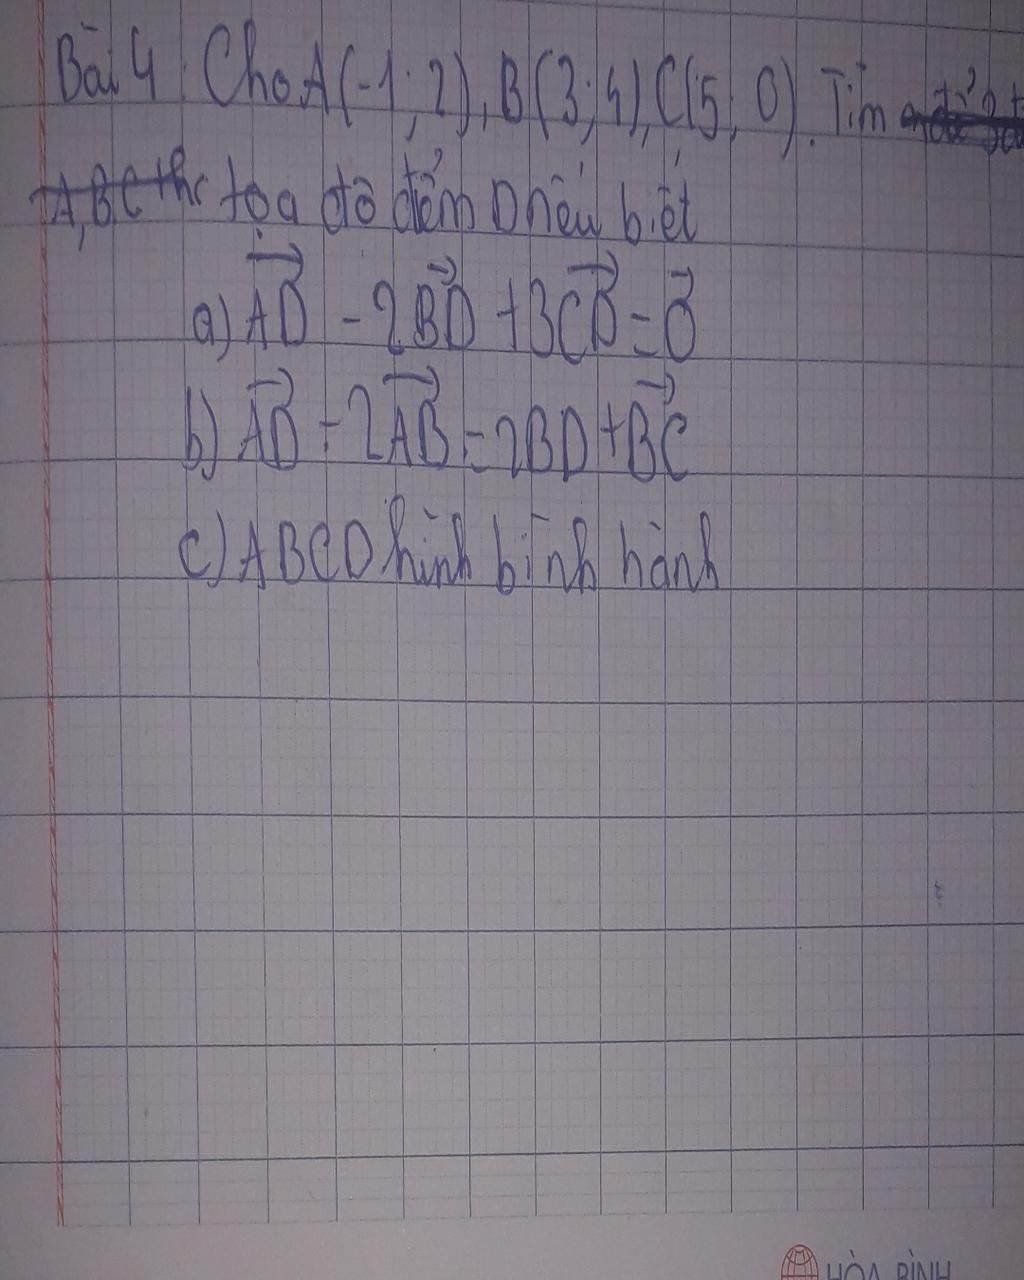 Bài 4: Cho A(-1; 2), B(3; 4), C(5; 0). Tìm
A, B C thr tọa độ điểm D nếu biết
a) AD - 2BD + 3CD = 0
b) AD - 2AB = 2BD + BC
c) ABCD hình bình hành
HÒA BÌNH